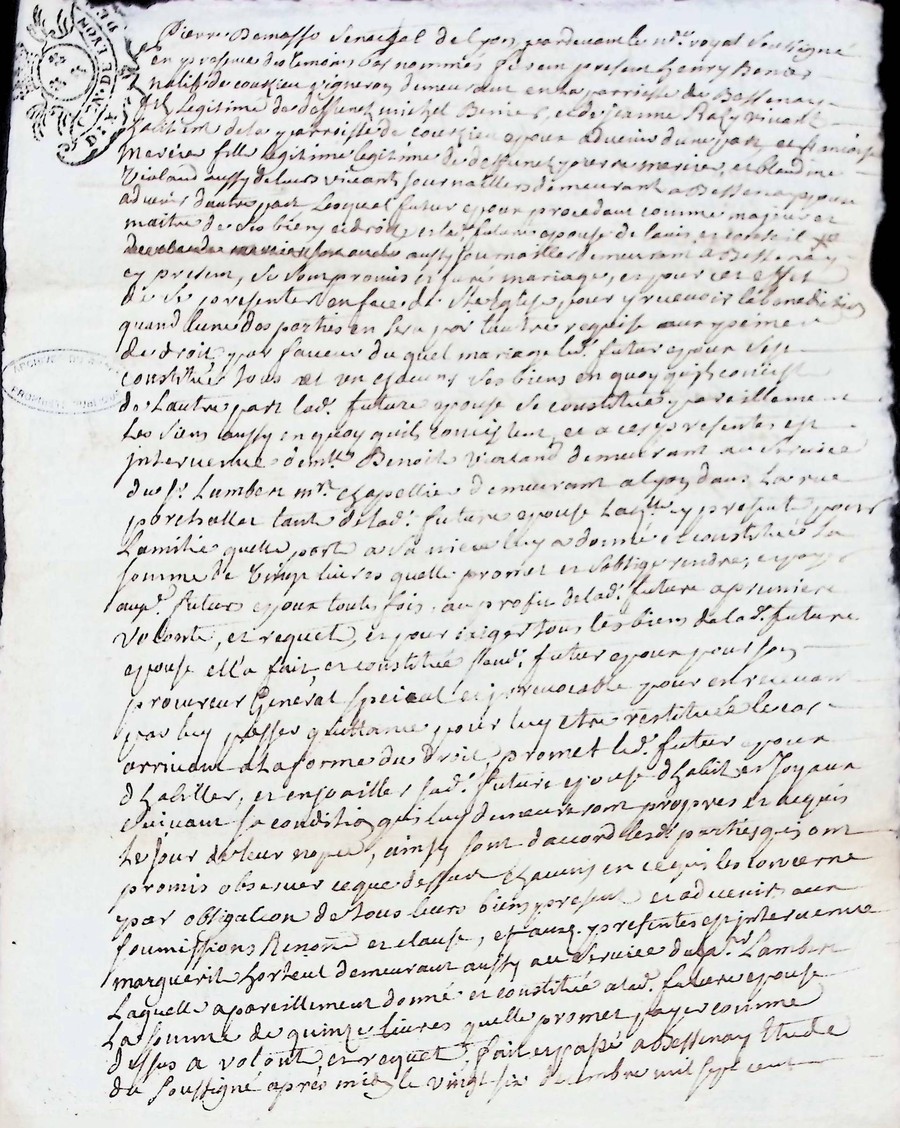 GEN. DE LYON
Pierre Demasso Senechal de Lyon pardevant le nre. royal soussigné
en presence des temoins bas nommés fut en present henry Benier
natif de coursieu vigneron demeurant en la parroisse de Bessenay
fils legitime de deffunct michel Benier, et de jeanne vivant
habitant de la parroisse de coursieu epoux advenir d'une part, et
mercier fille legitime legitime de deffunct pierre mercier, et blandine
Vialand aussy de leurs vivants journalliers demeurant a Bessenay epouse
advenir d'autre part lesquel futur epoux procedant comme majeur et
maitre de ses biens et droit et lad. future epouse de l'avis et conseil
aussy journallier demeurant a Bessenay
cy present, se sont promis et juré mariage, et pour cet effet
de se presenter en face de Ste Eglise pour y recevoir la benediction
quand l'une des parties en sera par l'autre requise aux peines
de droit, par faveur du quel mariage led. futur epoux s'est
constitué tous et un chacuns ses biens en quoy qu'ils concist
de l'autre part lad. future epouse se constitue pareillement
les siens aussy en quoy quils concistent, et a ces presentes est
intervenue Benoit Vialand demeurant au service
du sr. Lambert mre. chapellier demeurant a lyon dans la rue
tante de lad. future epouse laqlle. cy presente pour
lamitié quelle porte a sa niece luy a donné et constitué la
somme de Vingt livres quelle promet et s'oblige rendre, et payer
aud. futur epoux toutes fois au profit de lad. future a premiere
volonté, et requet, et pour exiger tous les biens de lad. future
epouse ell'a fait, et constitué sond. futur epoux pour son
procureur General special et irrevocable pour en recevant
par luy passer quittance pour luy etre restituée le cas
arrivant a la forme du droit, promet led. futur epoux
d'habiller, et enjoailler sad. future epouse d'habit et Joyaux
suivant sa condition qui luy demeureront propres et acquis
le jour de leur nopce, ainsy sont d'accord lesd. parties qui ont
promis observer ce que dessus chacuns en ce qui les concerne
par obligation de tous leurs biens present et advenir aux
soumissions Renonon et clause, et aux presentes est intervenue
marguerit demeurant aussy au service dud. sr. Lambert
Laquelle a pareillement donné et constitué a lad. future epouse
La somme de quinze livres quelle promet payer comme
dessus a volonté, et requet, fait et passé a Bessenay Etude
du soussigné apres midy le vingt six decembre mil sept cent